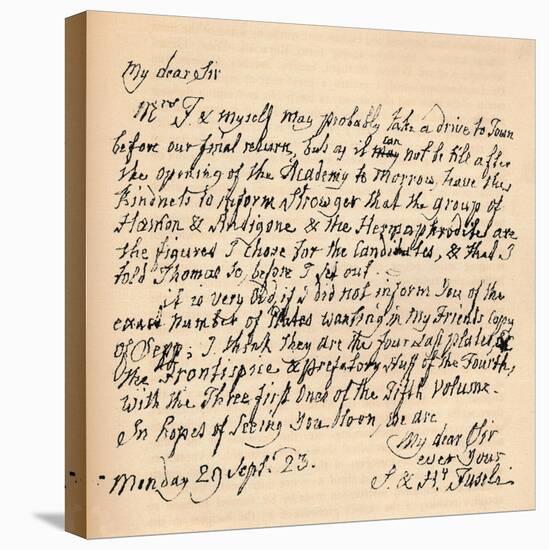 My dear Sir
Mrs F. & myself may probably take a drive to Town
before our final return, but as it can may not be till after
the opening of the Academy to Morrow, have the
Kindness to inform Strowger that the group of
Hæmon & Antigone & the Hermaphrodite are
the figures I chose for the Candidates, & that I
told Thomas so, before I set out.
it is very odd, if I did not inform You of the
exact number of Plates wanting in my Friends Copy
of Sepp; I think they are the four Last plates
the Frontispice & prefatory stuff of the Fourth,
with the Three first Ones of the Fifth Volume.
In Hopes of Seeing You Soon, we are
My dear Sir
ever Yours
S. & Hy Fuseli
Monday 29 Sept. 23.